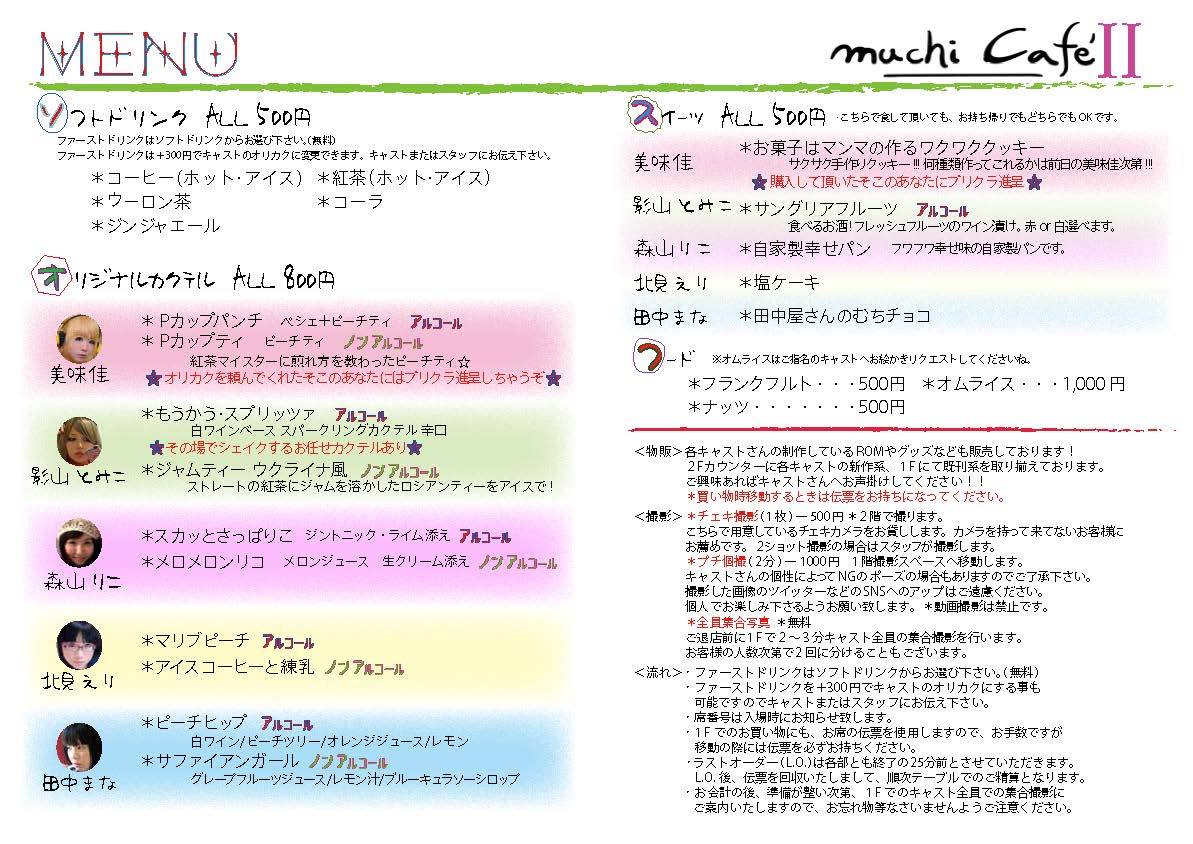 MENU
muchi Café II
ソフトドリンク ALL 500円
ファーストドリンクはソフトドリンクからお選び下さい。(無料)
ファーストドリンクは+300円でキャストのオリカクに変更できます。キャストまたはスタッフにお伝え下さい。
＊コーヒー(ホット・アイス) ＊紅茶(ホット・アイス)
＊ウーロン茶 ＊コーラ
＊ジンジャエール
オリジナルカクテル ALL 800円
美味佳
＊Pカップパンチ ペシェ+ピーチティ アルコール
＊Pカップティ ピーチティ ノンアルコール
紅茶マイスターに煎れ方を教わったピーチティ☆
★オリカクを頼んでくれたそこのあなたにはプリクラ進呈しちゃうぞ★
影山とみこ
＊もうかう・スプリッツァ アルコール
白ワインベース スパークリングカクテル 辛口
★その場でシェイクするお任せカクテルあり★
＊ジャムティー ウクライナ風 ノンアルコール
ストレートの紅茶にジャムを溶かしたロシアンティーをアイスで!
森山りこ
＊スカッとさっぱりこ ジントニック・ライム添え アルコール
＊メロメロンリコ メロンジュース 生クリーム添え ノンアルコール
北見えり
＊マリブピーチ アルコール
＊アイスコーヒーと練乳 ノンアルコール
田中まな
＊ピーチヒップ アルコール
白ワイン/ピーチツリー/オレンジジュース/レモン
＊サファイアンガール ノンアルコール
グレープフルーツジュース/レモン汁/ブルーキュラソーシロップ
スイーツ ALL 500円 ・こちらで食して頂いても、お持ち帰りでもどちらでもOKです。
美味佳 ＊お菓子はマンマの作るワクワククッキー
サクサク手作りクッキー!!! 何種類作ってこれるかは前日の美味佳次第!!!
★購入して頂いたそこのあなたにプリクラ進呈★
影山とみこ ＊サングリアフルーツ アルコール
食べるお酒! フレッシュフルーツのワイン漬け。赤or白選べます。
森山りこ ＊自家製幸せパン フワフワ幸せ味の自家製パンです。
北見えり ＊塩ケーキ
田中まな ＊田中屋さんのむちチョコ
フード ※オムライスはご指名のキャストへお絵かきリクエストしてくださいね。
＊フランクフルト・・・500円 ＊オムライス・・・1,000円
＊ナッツ・・・・・・・500円
＜物販＞各キャストさんの制作しているROMやグッズなども販売しております!
2Fカウンターに各キャストの新作系、1Fにて既刊系を取り揃えております。
ご興味あればキャストさんへお声掛けしてください!!
＊買い物時移動するときは伝票をお持ちになってください。
＜撮影＞＊チェキ撮影(1枚)ー500円 ＊2階で撮ります。
こちらで用意しているチェキカメラをお貸しします。カメラを持って来てないお客様に
お薦めです。2ショット撮影の場合はスタッフが撮影します。
＊プチ個撮(2分)ー1000円 1階撮影スペースへ移動します。
キャストさんの個性によってNGのポーズの場合もありますのでご了承下さい。
撮影した画像のツイッターなどのSNSへのアップはご遠慮ください。
個人でお楽しみ下さるようお願い致します。＊動画撮影は禁止です。
＊全員集合写真 ＊無料
ご退店前に1Fで2～3分キャスト全員の集合撮影を行います。
お客様の人数次第で2回に分けることもございます。
＜流れ＞・ファーストドリンクはソフトドリンクからお選び下さい。(無料)
・ファーストドリンクを+300円でキャストのオリカクにする事も
可能ですのでキャストまたはスタッフにお伝え下さい。
・席番号は入場時にお知らせ致します。
・1Fでのお買い物にも、お席の伝票を使用しますので、お手数ですが
移動の際には伝票を必ずお持ちください。
・ラストオーダー(L.O.)は各部とも終了の25分前とさせていただきます。
L.O.後、伝票を回収いたしまして、順次テーブルでのご精算となります。
・お会計の後、準備が整い次第、1Fでのキャスト全員での集合撮影に
ご案内いたしますので、お忘れ物等なさいませんようご注意ください。